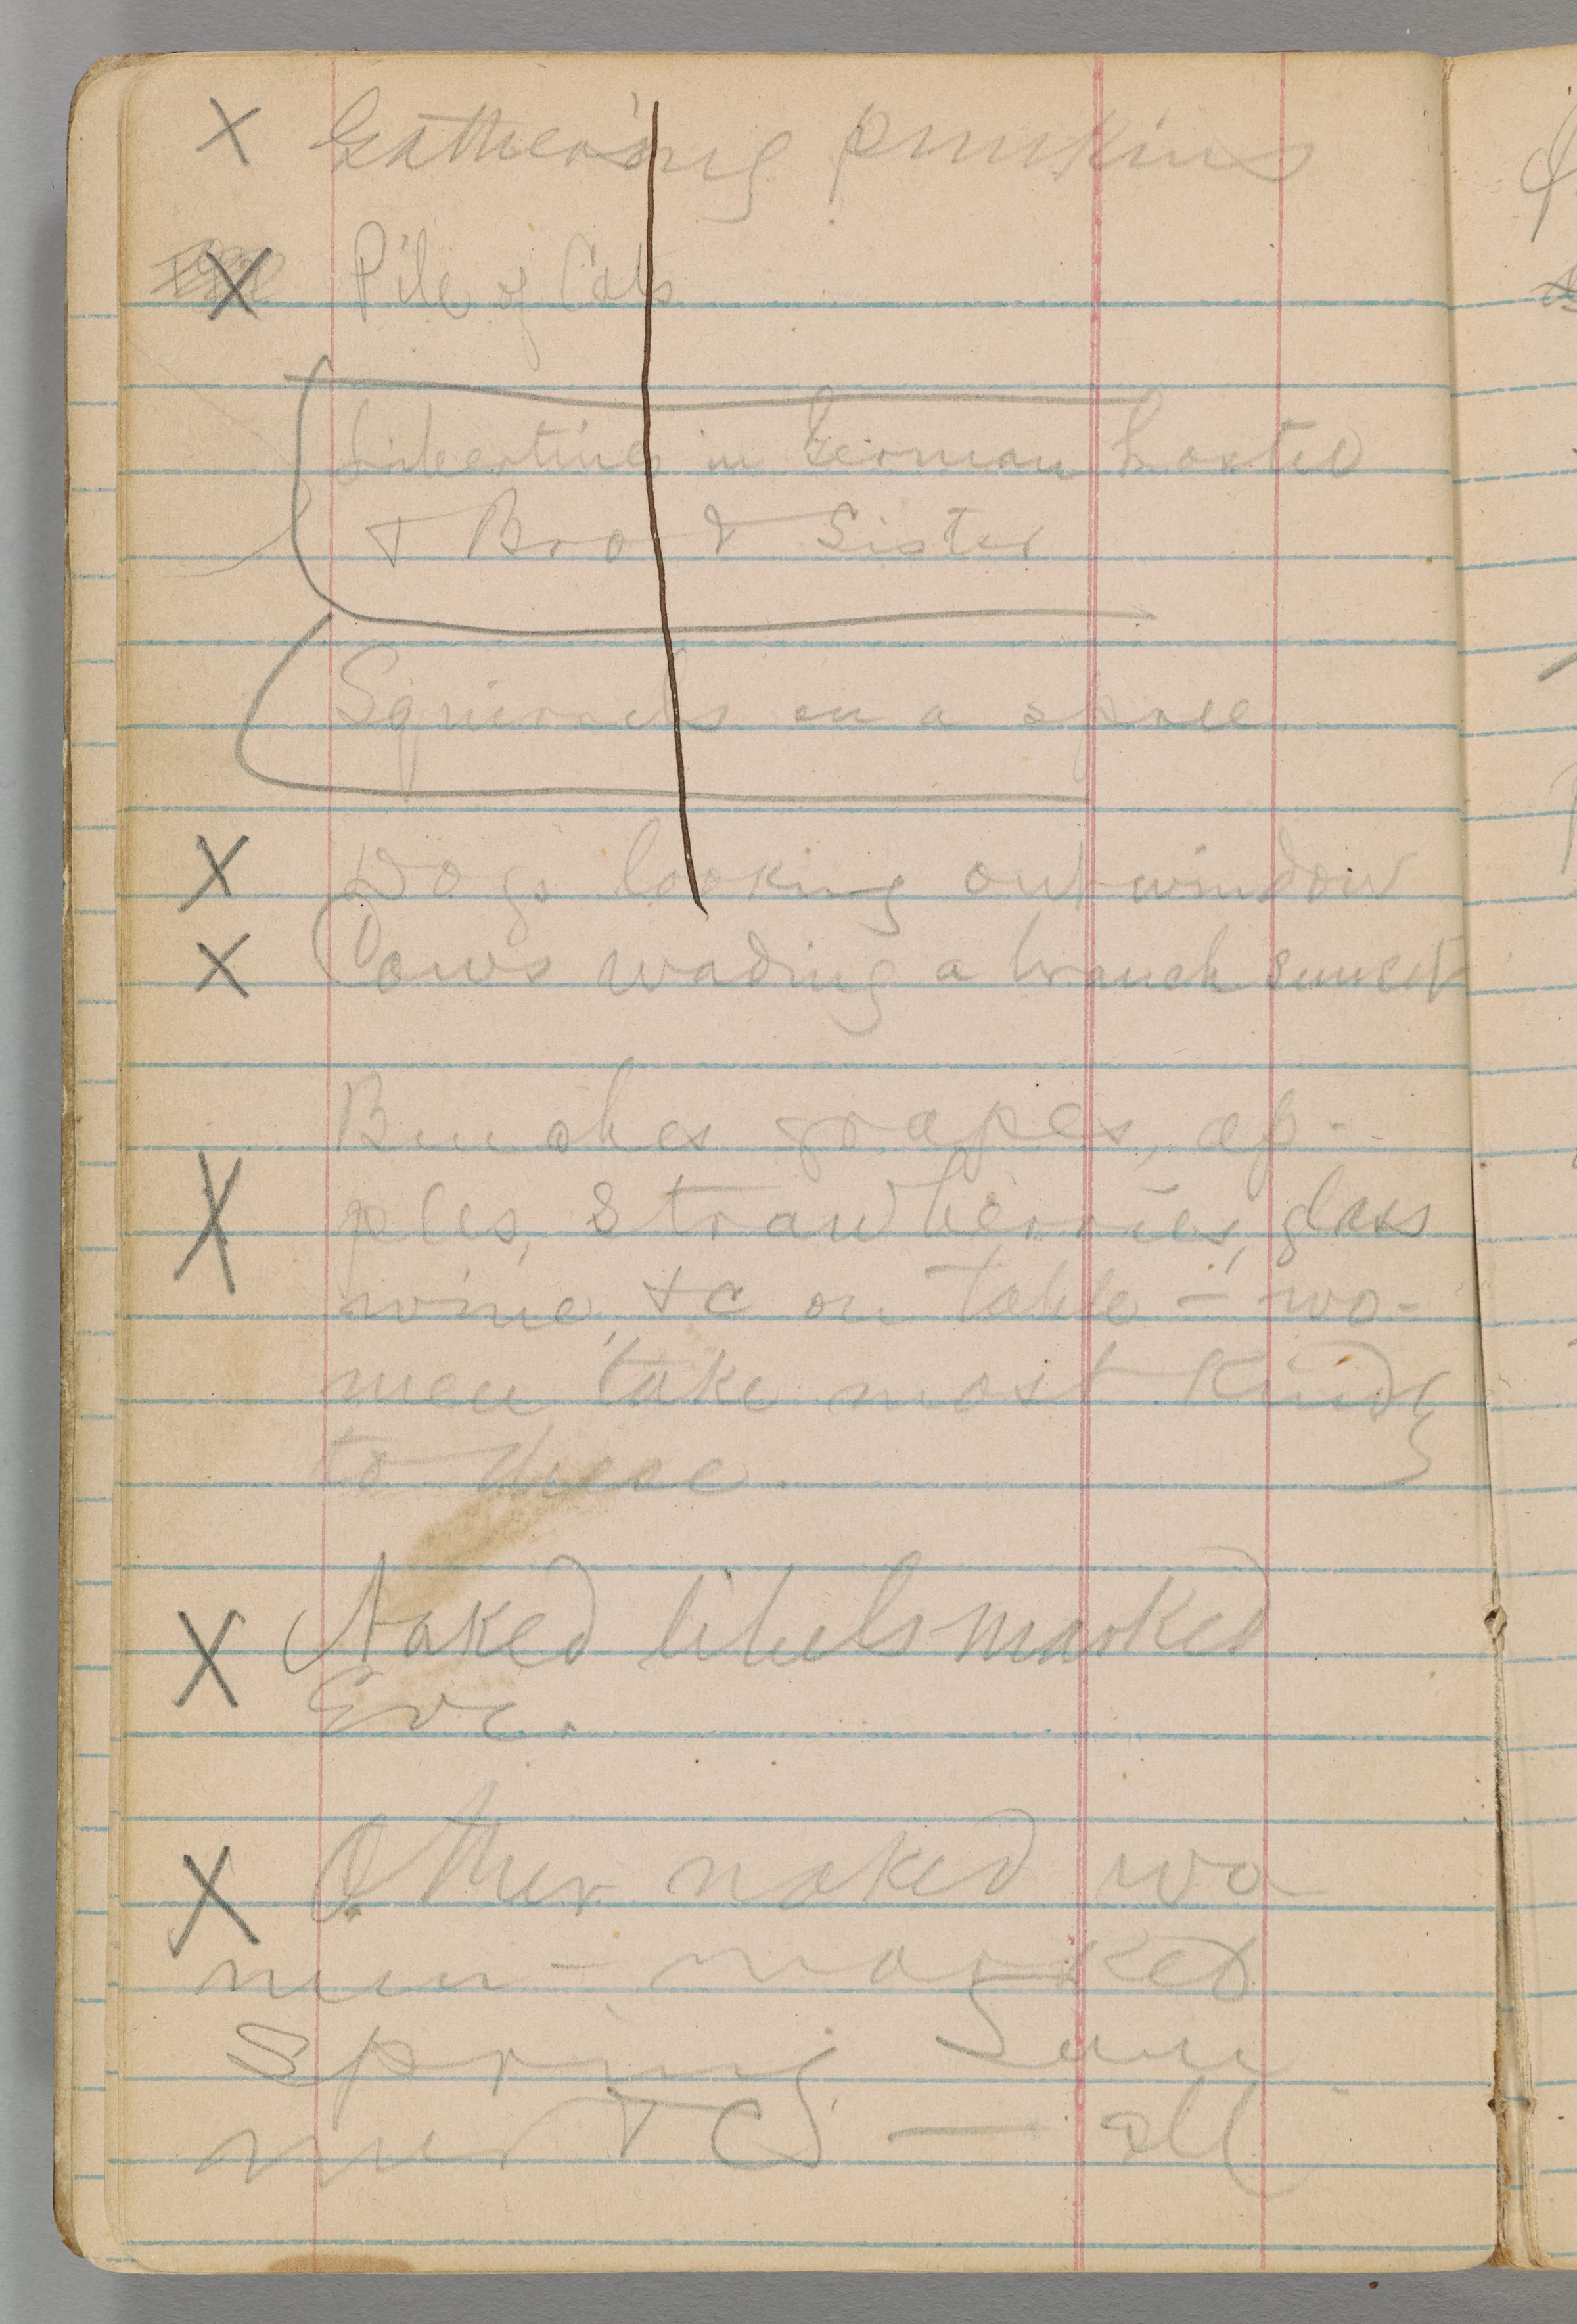 X Gathering punkins
X Pile of Cats
Libertine in German Hoxtel
+ Bro & Sister
Squirrels on a spree
X Dogs looking out window
X Cows wading a branch sunset
Bunches grapes, ap-
X ples, strawberries, glass
wine, &c on table – wo-
men take most kinds
to these.
X Naked libels marked
Eve.
X Other naked wo
men – marked
Spring Sum
mer &C — all